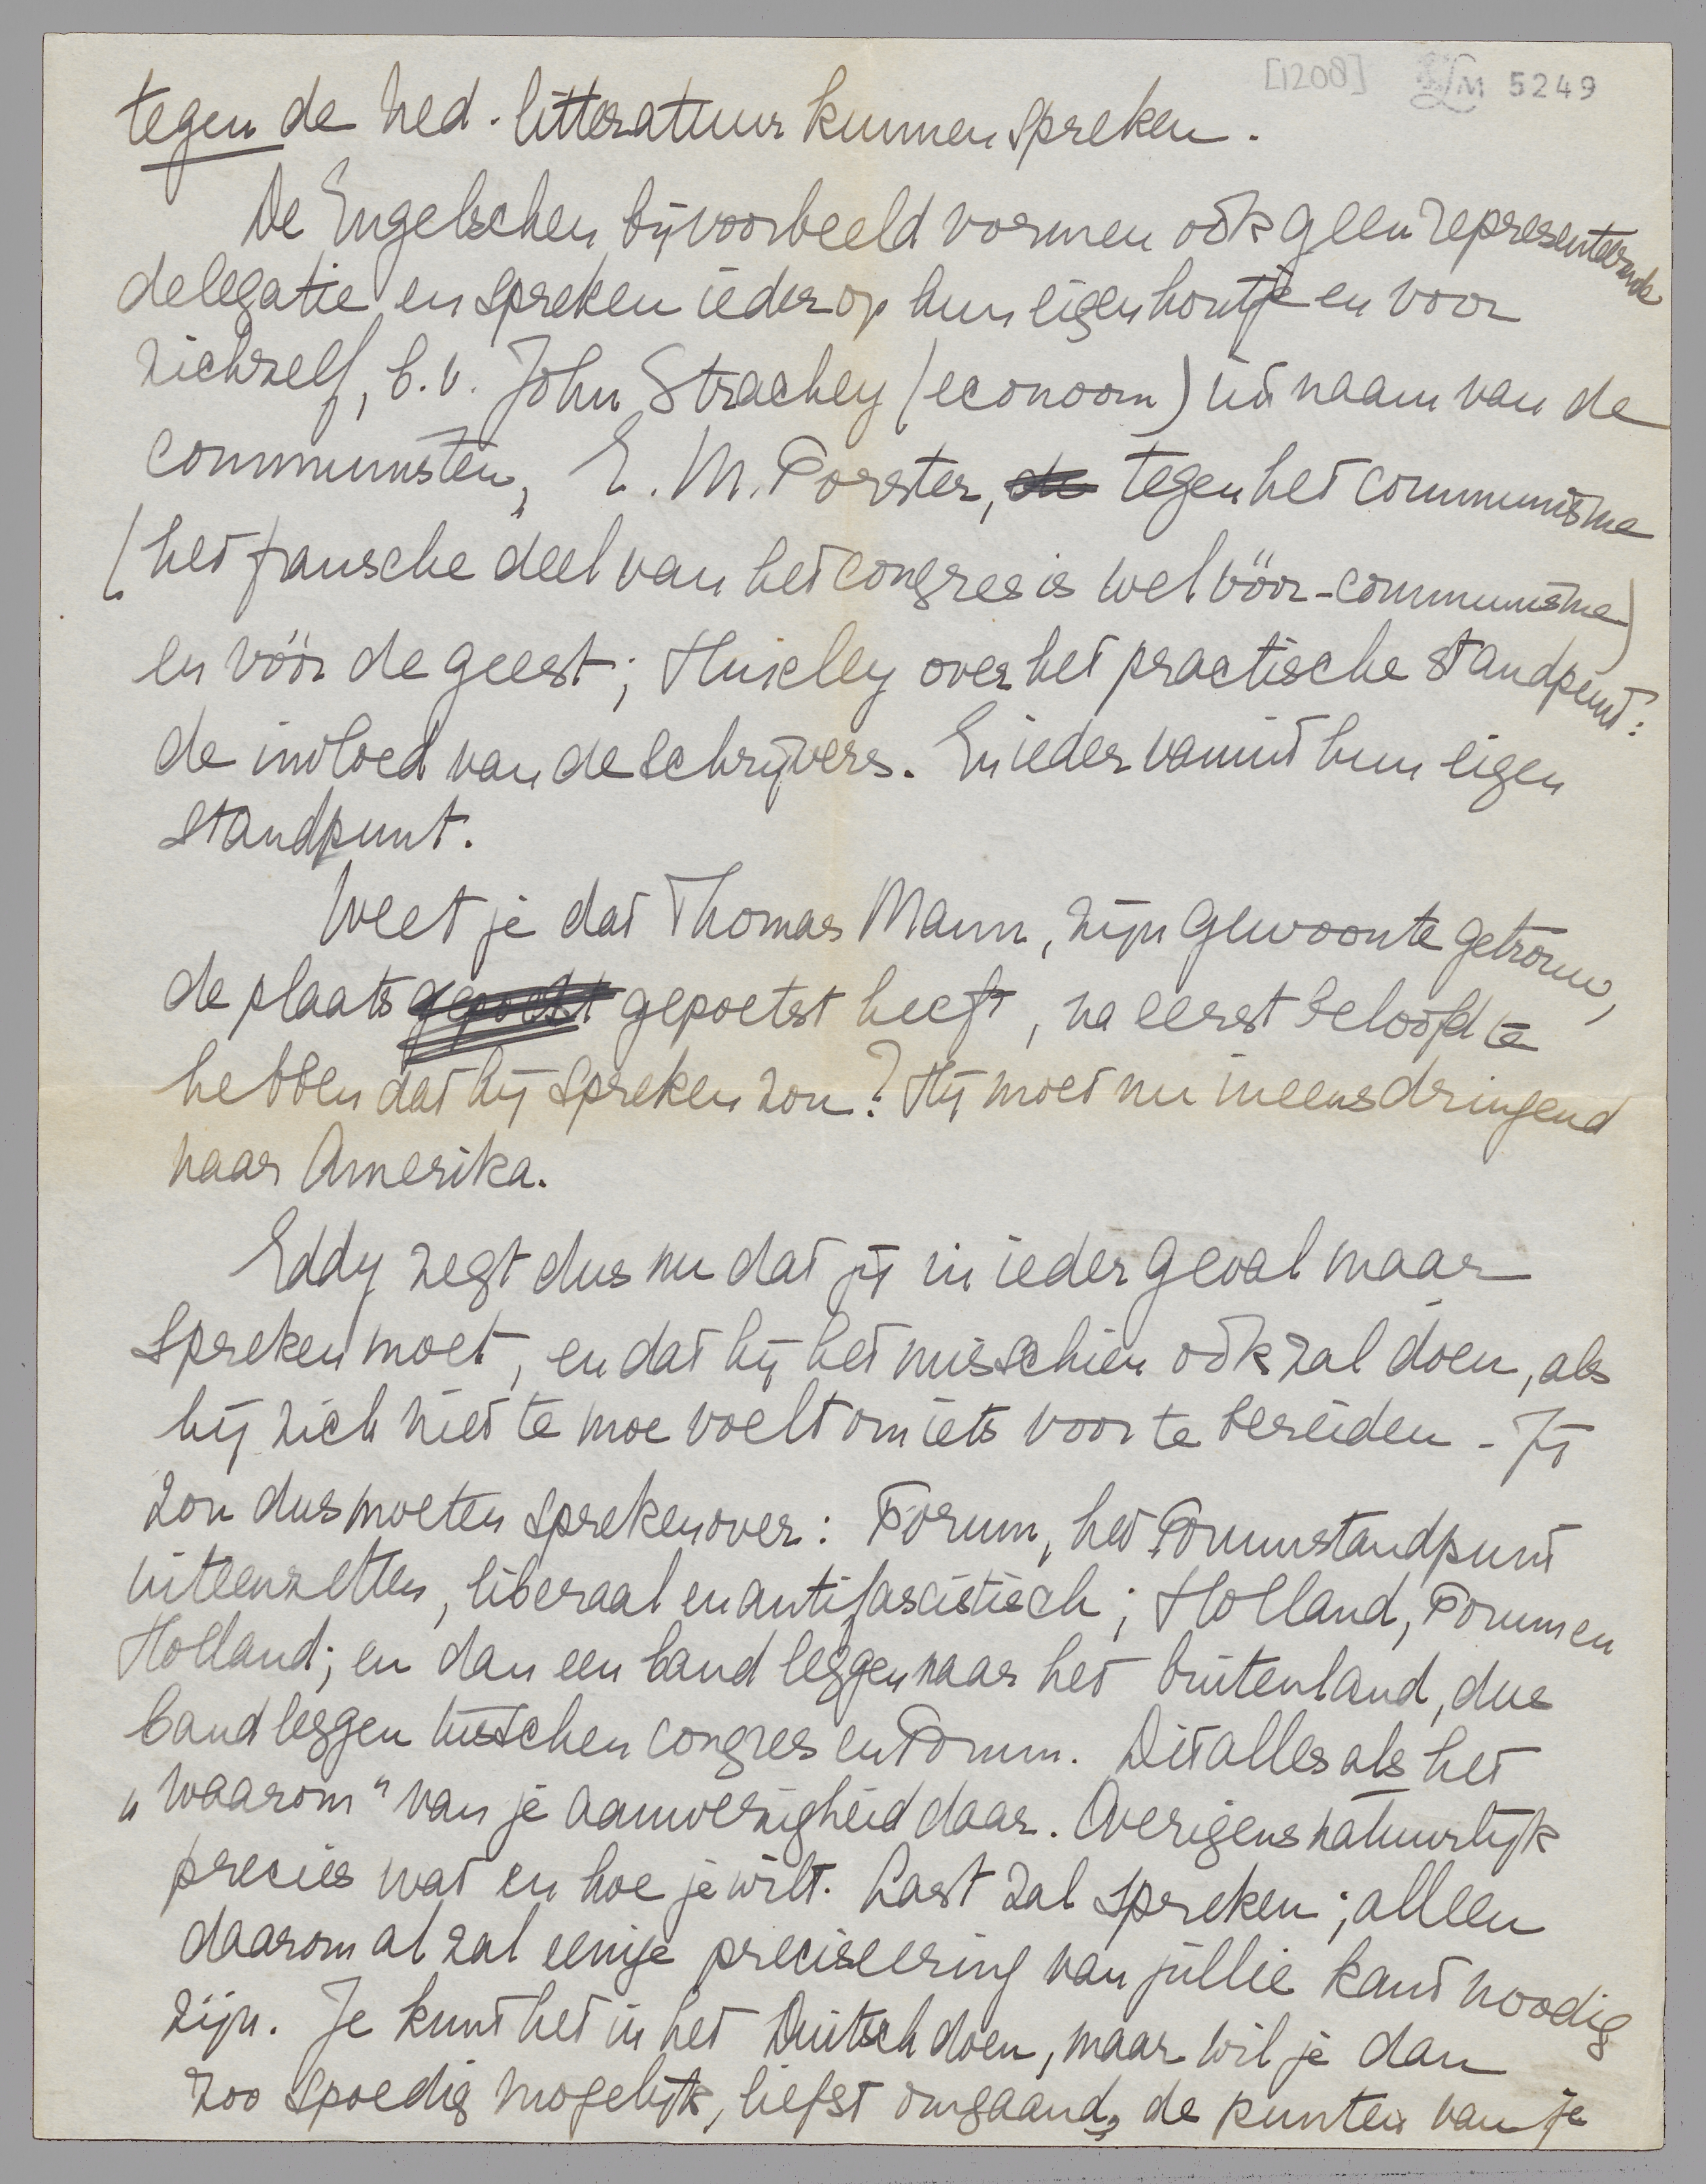 [1208] LM 5249
tegen de Ned. litteratuur kunnen spreken.
De Engelschen bijvoorbeeld vormen ook geen representeerende
delegatie en spreken ieder op hun eigen houtje en voor
zichzelf, b.v. John Strachey (econoom) uit naam van de
communisten, E. M. Forster, tegen het communisme
(het fransche deel van het congres is wel vóór-communisme)
en vóór de geest; Huxley over het practische standpunt:
de invloed van de schrijvers. En ieder vanuit hun eigen
standpunt.
Weet je dat Thomas Mann, zijn gewoonte getrouw,
de plaats gepoetst heeft, na eerst beloofd te
hebben dat hij spreken zou? Hij moet nu ineens dringend
naar Amerika.
Eddy zegt dus nu dat jij in ieder geval maar
spreken moet, en dat hij het misschien ook zal doen, als
hij zich niet te moe voelt om iets voor te bereiden. - Jij
zou dus moeten spreken over: Forum, het Forumstandpunt
uiteenzetten, liberaal en antifascistisch; Holland, Forum en
Holland; en dan een band leggen naar het buitenland, dus
band leggen tusschen congres en Forum. Dit alles als het
„waarom" van je aanwezigheid daar. Overigens natuurlijk
precies wat en hoe je wilt. Last zal spreken; alleen
daarom al zal eenige preciseering van jullie kant noodig
zijn. Je kunt het in het Duitsch doen, maar wil je dan
zoo spoedig mogelijk, liefst omgaand, de punten van je